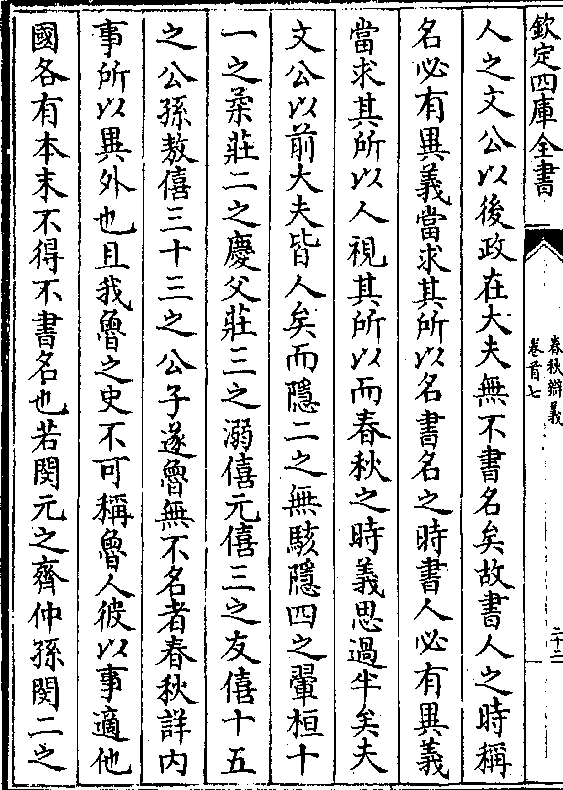 欽定四庫全書
春秋辯義
卷首七
二十二
人之文公以後政在大夫無不書名矣故書人之時稱
名必有異義當求其所以名書名之時書人必有異義
當求其所以人視其所以而春秋之時義思過半矣夫
文公以前大夫皆人矣而隱二之無駭隱四之翬桓十
一之柔莊二之慶父莊三之溺僖元僖三之友僖十五
之公孫敖僖三十三之公子遂魯無不名者春秋詳内
事所以異外也且我魯之史不可稱魯人彼以事適他
國各有本末不得不書名也若閔元之齊仲孫閔二之